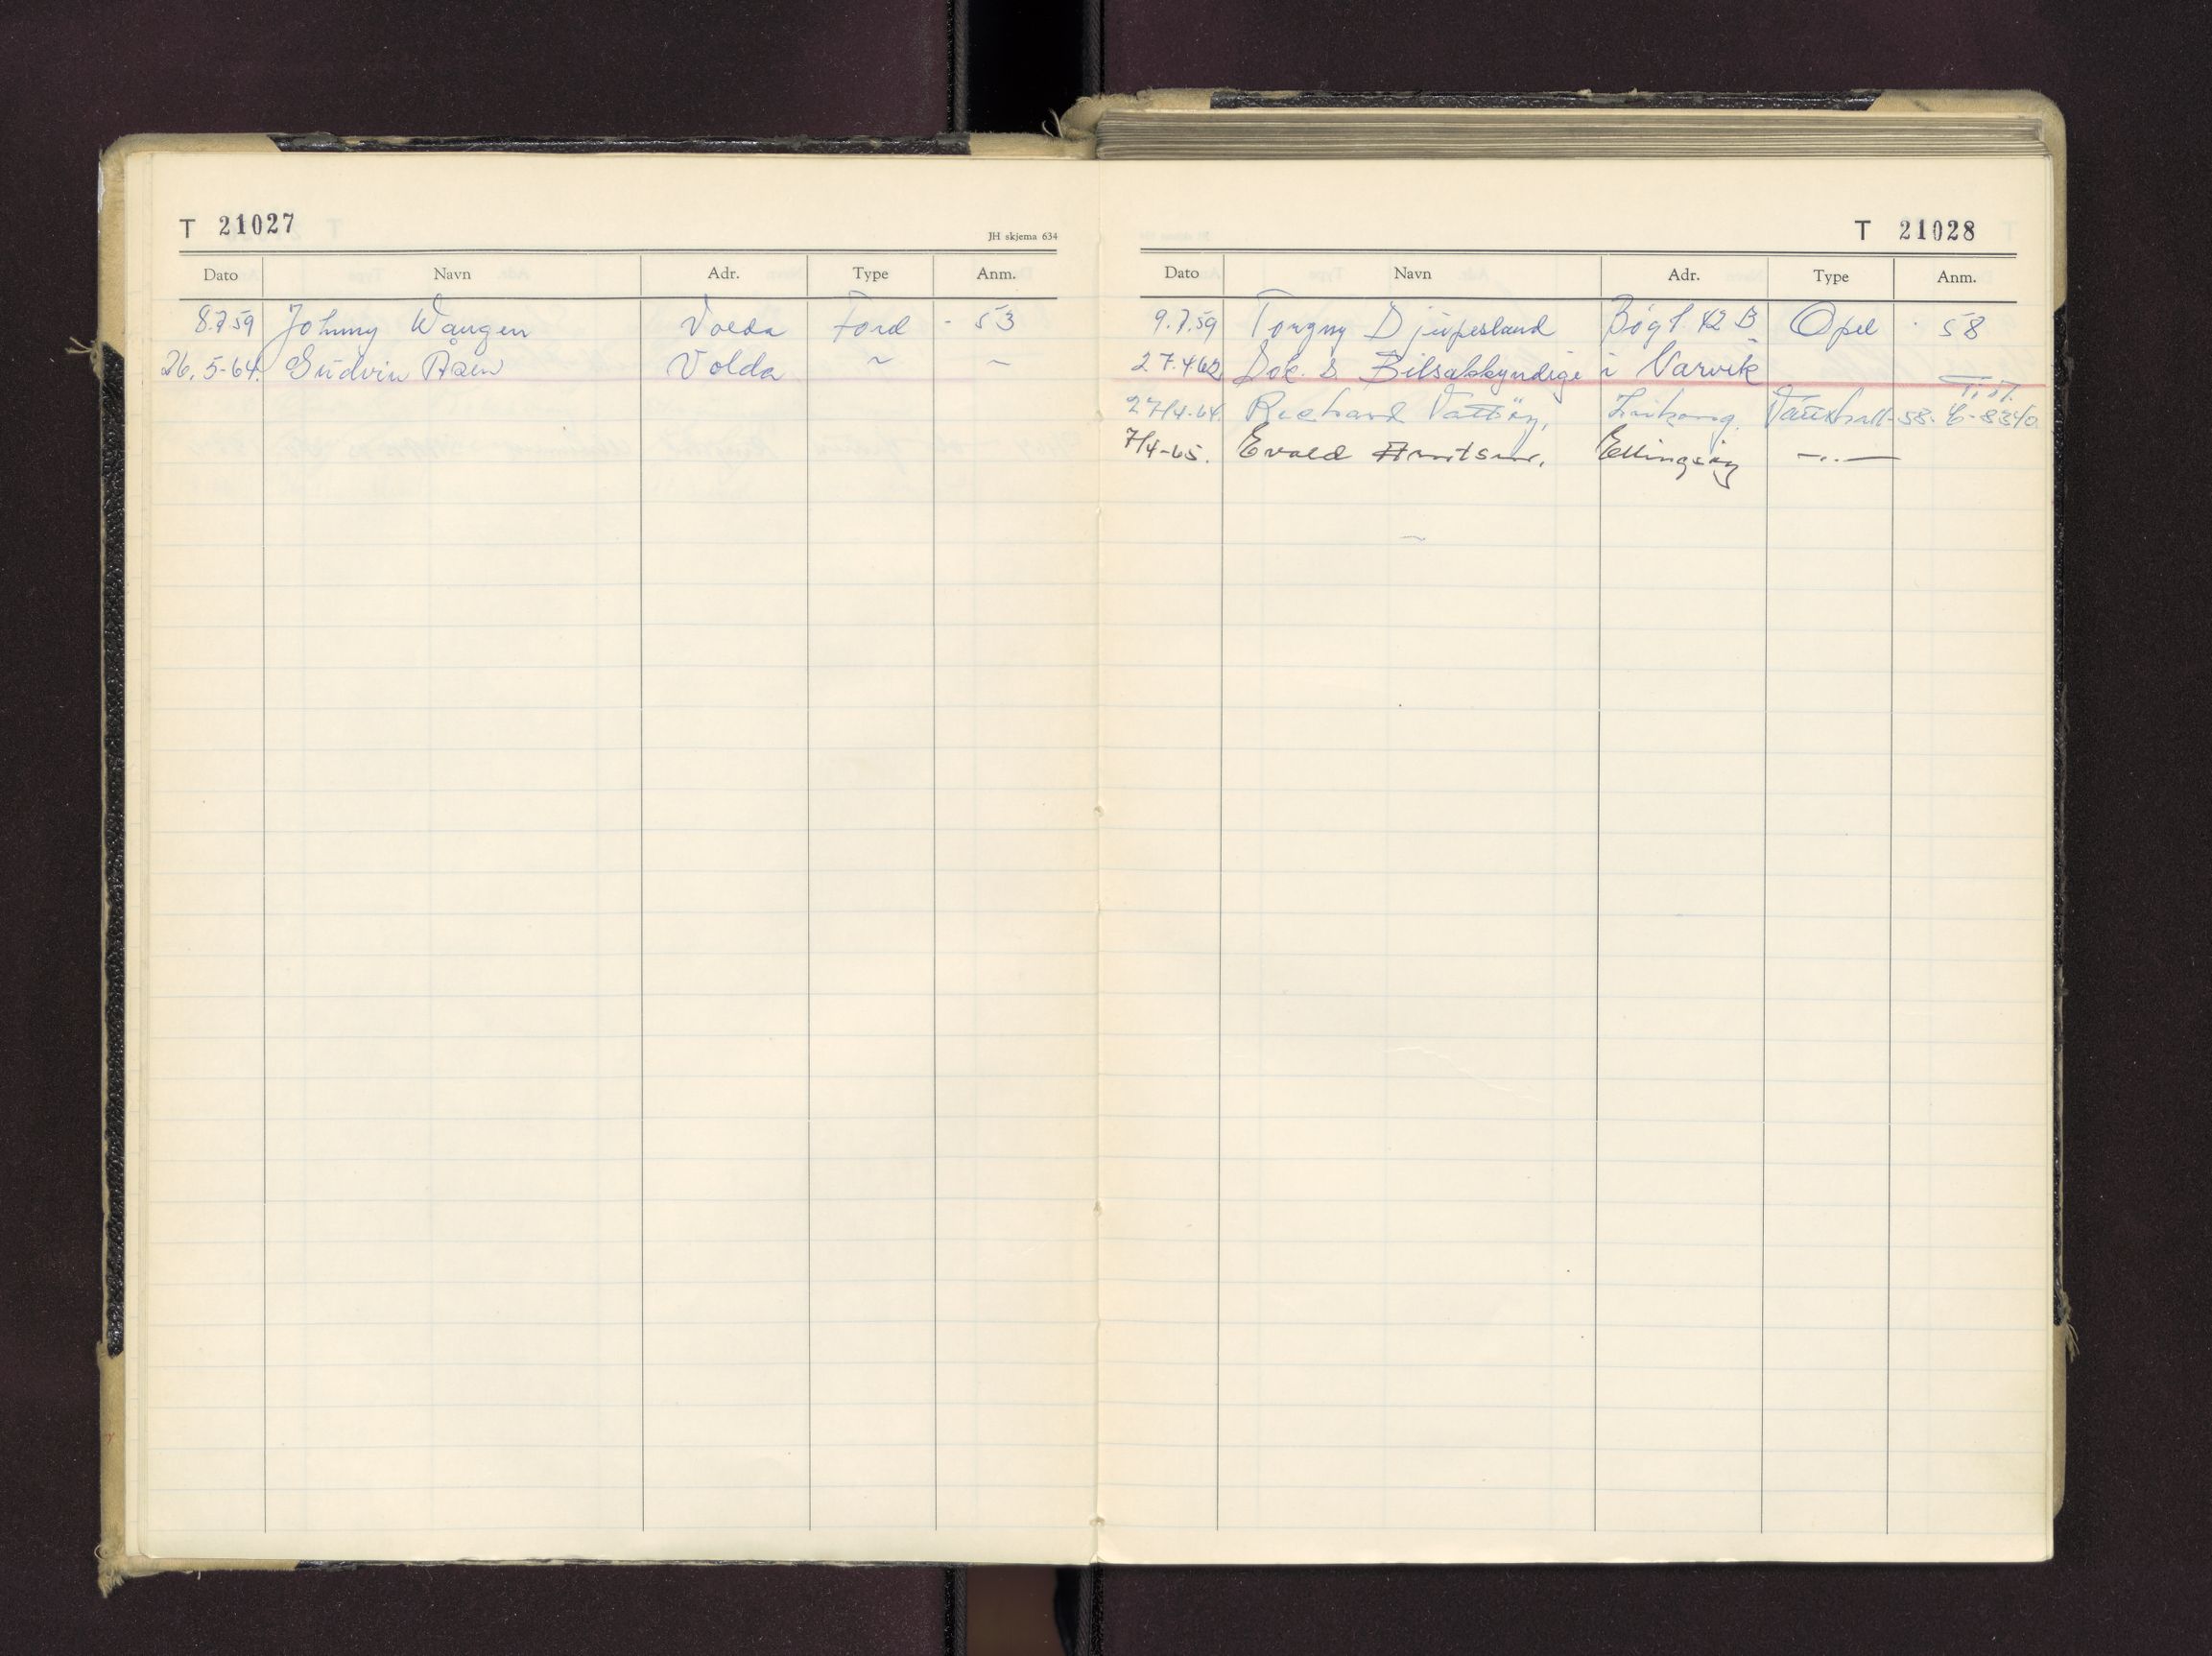 T 21027
JH skjema 634
Dato Navn Adr. Type Anm.
8.7.59 Johnny Wangen Volda Ford - 53
26.5-64. Gudvin Aasen Volda ~ ~
T 21028
Dato Navn Adr. Type Anm.
9.7.59 Torgny Djupesland Bøgt. 42 B Opel - 58
27.4.62 Dok. s. Bilsakkyndige i Narvik
27/4-64. Richard Vattøy, Vauxhall-58.
7/4-65. Evald Ellingsøy —..—